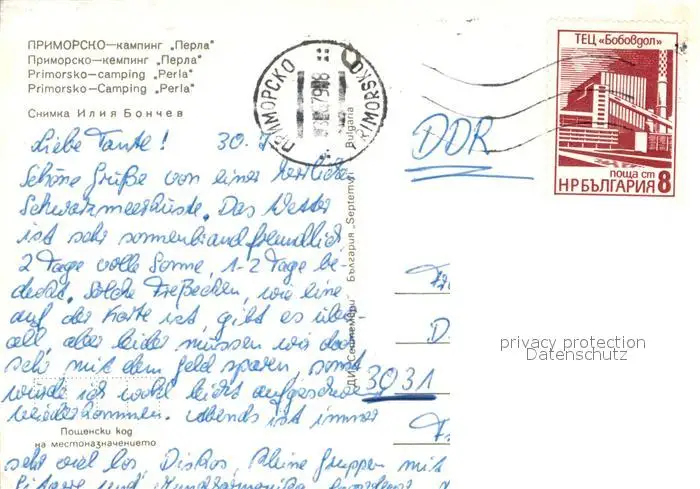 ПРИМОРСКО—кампинг „Перла"
Приморско—кемпинг „Перла"
Primorsko—camping „Perla"
Primorsko—Camping „Perla"
Снимка Илия Бончев
Liebe Tante! 30.
Schöne Grüße von einer herrlichen
Schwarzmeerküste. Das Wetter
ist sehr sonnenbrandfreundlich
2 Tage volle Sonne, 1-2 Tage be-
deckt. Solche Freßecken, wie eine
auf der Karte ist, gibt es über-
all, aber leider müssen wir doch
sehr mit dem Geld sparen, sonst
würde ich wohl leicht aufgeschw
wiederkommen. Abends ist immer
sehr viel los, Diskos, kleine Gruppen mit
Gitarre und Mundharmonika
Пощенски код
на местоназначението
ПРИМОРСКО
PRIMORSKO
ДИ „Септември" България „Septemvri" Bulgaria
DDR
3031
ТЕЦ «Бобовдол»
поща ст
НРБЪЛГАРИЯ 8
privacy protection
Datenschutz